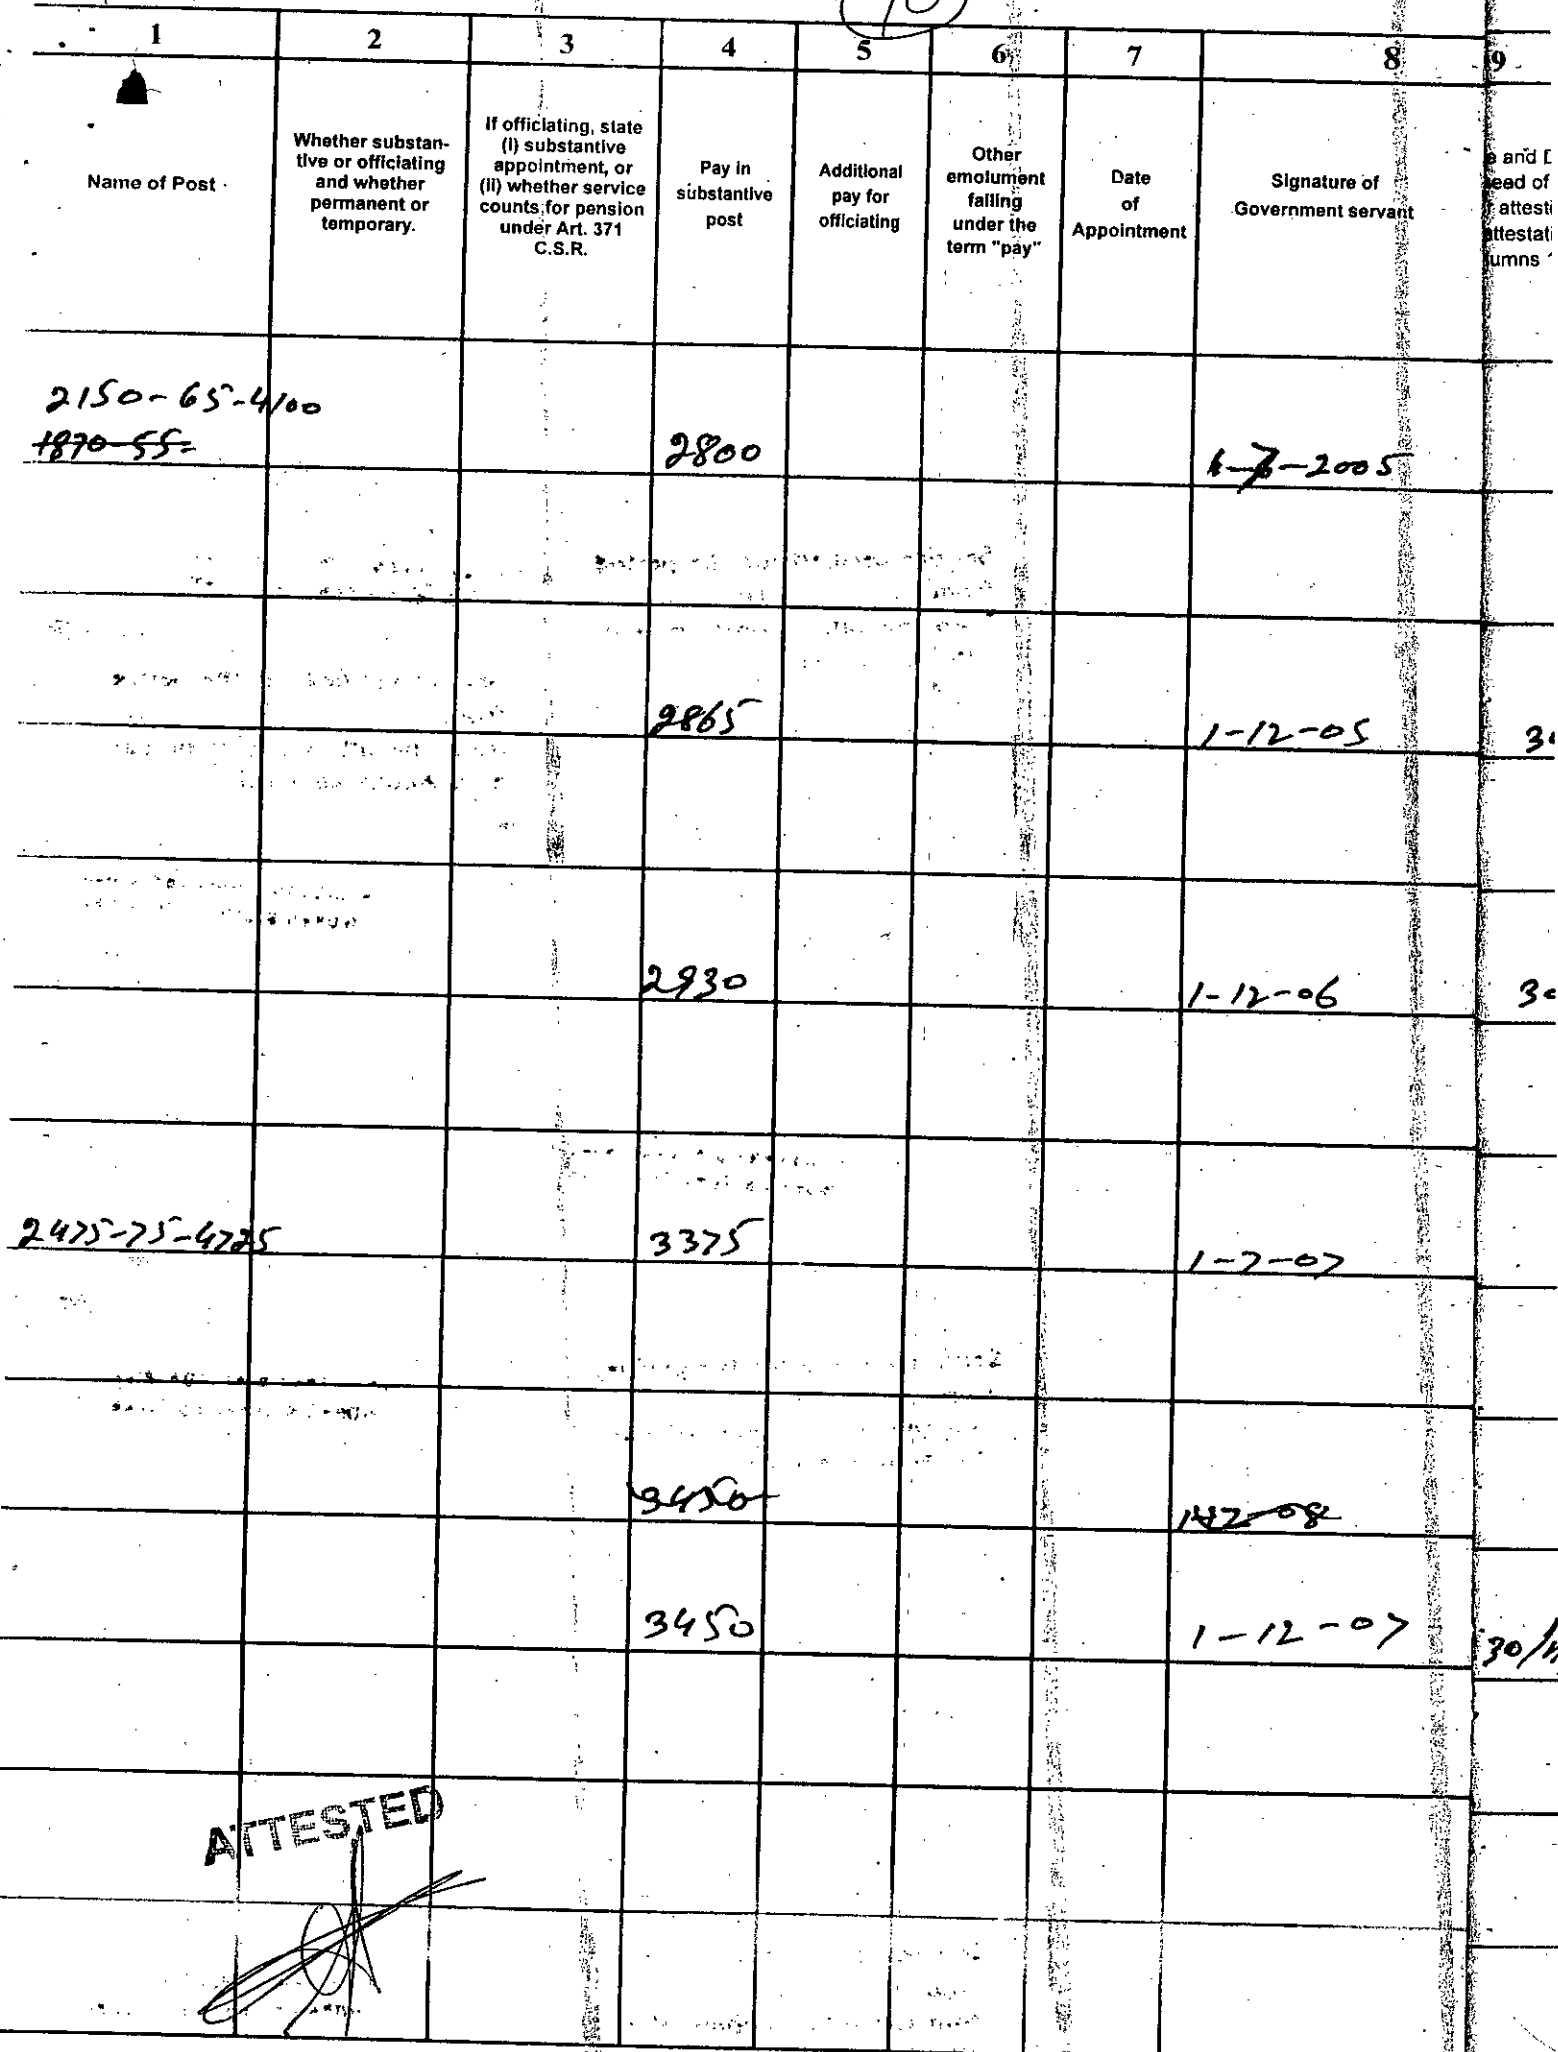 1 2 3 4 5 6 7 8 9
Name of Post
Whether substan-
tive or officiating
and whether
permanent or
temporary.
If officiating, state
(i) substantive
appointment, or
(ii) whether service
counts for pension
under Art. 371
C.S.R.
Pay in
substantive
post
Additional
pay for
officiating
Other
emolument
falling
under the
term "pay"
Date
of
Appointment
Signature of
Government servant
and D
eed of
attesti
attestati
umns
2150-65-4100
1870-55- 2800 1-7-2005
2865 1-12-05 30
2930 1-12-06 30
2475-75-4725 3375 1-7-07
3450
3450 1-12-07 30/11
ATTESTED